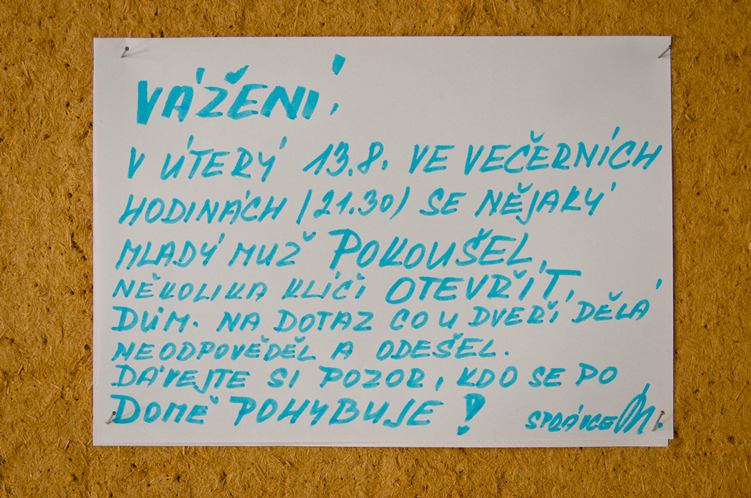 VÁŽENÍ!
V ÚTERÝ 13.8. VE VEČERNÍCH
HODINÁCH (21.30) SE NĚJAKÝ
MLADÝ MUŽ POKOUŠEL,
NĚKOLIKA KLÍČI OTEVŘÍT,
DŮM. NA DOTAZ CO U DVEŘÍ DĚLÁ
NEODPOVĚDĚL A ODEŠEL.
DÁVEJTE SI POZOR, KDO SE PO
DOMĚ POHYBUJE!
SPRÁVCE